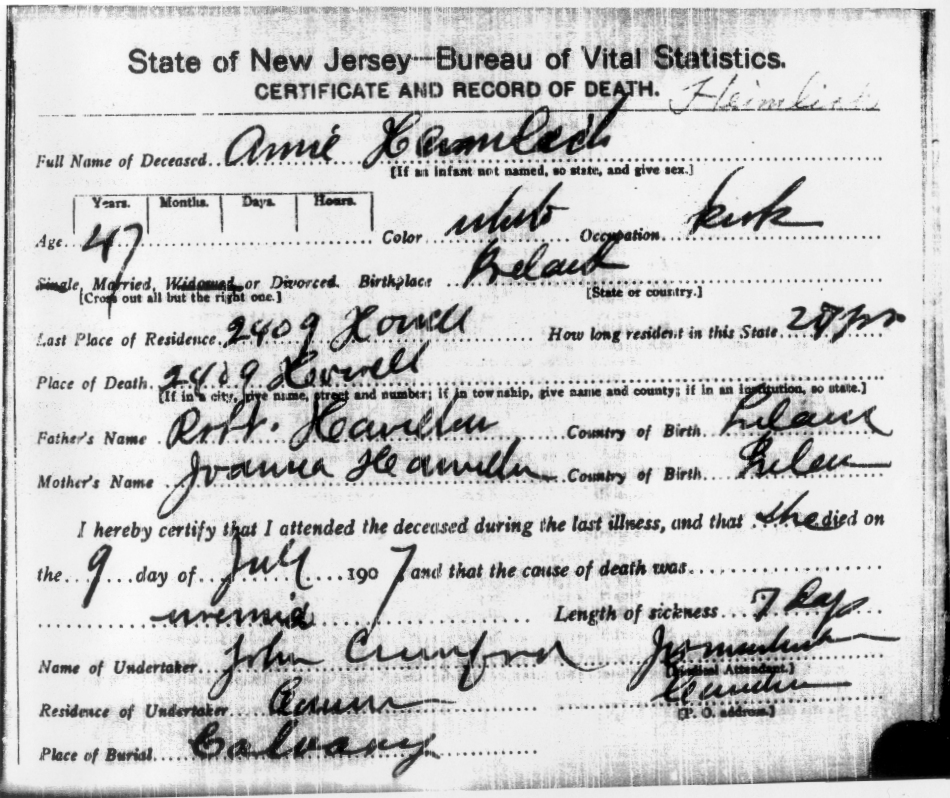 State of New Jersey—Bureau of Vital Statistics.
CERTIFICATE AND RECORD OF DEATH. Heimlich
Full Name of Deceased Annie
[If an infant not named, so state, and give sex.]
Years. Months. Days. Hours.
Age 47 Color white Occupation
Single, Married, Widowed, or Divorced. Birthplace Ireland
[Cross out all but the right one.] [State or country.]
Last Place of Residence 2409 Howell How long resident in this State yrs
Place of Death 2409 Howell
[If in a city, give name, street and number; if in township, give name and county; if in an institution, so state.]
Father's Name Robt. Country of Birth Ireland
Mother's Name Joanna Country of Birth
I hereby certify that I attended the deceased during the last illness, and that she died on
the 9 day of July 1907 and that the cause of death was
uremia Length of sickness 7 days
Name of Undertaker John
[Medical Attendant.]
Residence of Undertaker Camden
[P. O. address.]
Place of Burial Calvary